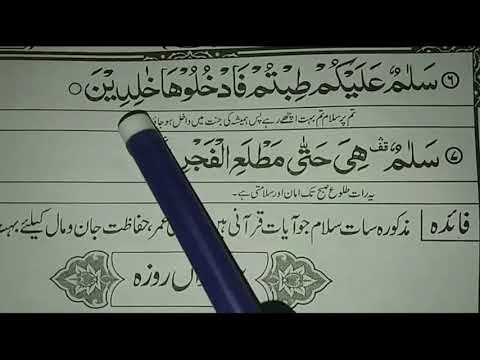 ۶ سَلٰمٌ عَلَيْكُمْ طِبْتُمْ فَادْخُلُوْهَا خٰلِدِيْنَ ○
تم پر سلام تم بہت اچھے رہے پس ہمیشہ کی جنت میں داخل ہو جاؤ
۷ سَلٰمٌ قف هِيَ حَتّٰى مَطْلَعِ الْفَجْرِ
یہ رات طلوع صبح تک امان اور سلامتی ہے۔
فائدہ مذکورہ سات سلام جو آیات قرآنی ہیں عمر، حفاظت جان و مال کیلئے بہت
روزہ